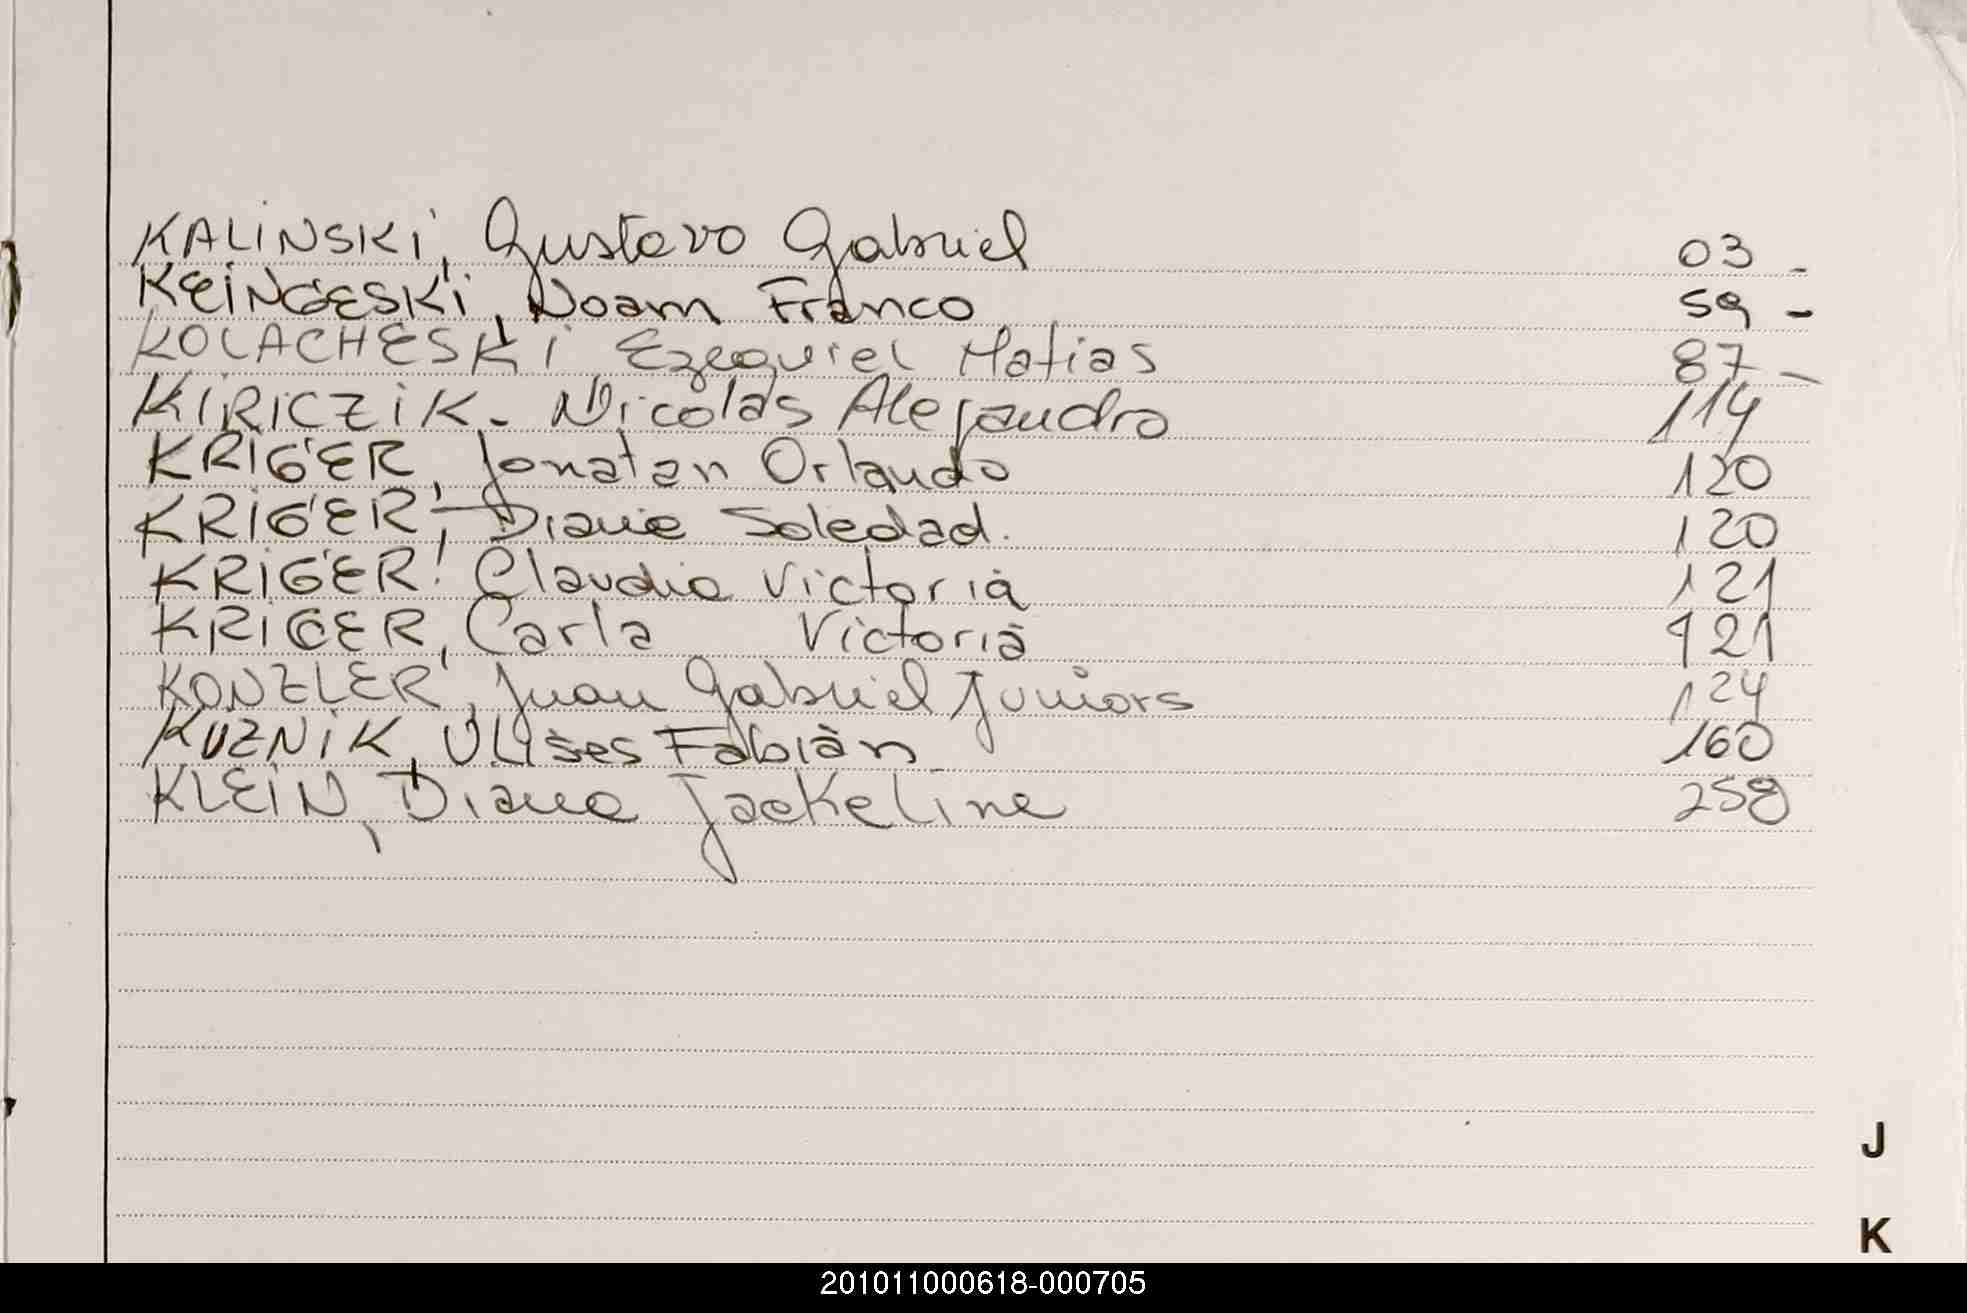 KALINSKI, Gustavo Gabriel 03 -
KEINGESKI, Noam Franco 59 -
KOLACHESKI Ezequiel Matias 87 -
KIRICZIK - Nicolás Alejandro 114
KRIGER, Jonatan Orlando 120
KRIGER, Diane Soledad. 120
KRIGER, Claudia Victoria 121
KRIGER, Carla Victoria 121
KONZLER, Juan Gabriel Juniors 124
KUZNIK, Ulises Fabián 160
KLEIN, Diana Jackeline 258
J
K
201011000618-000705